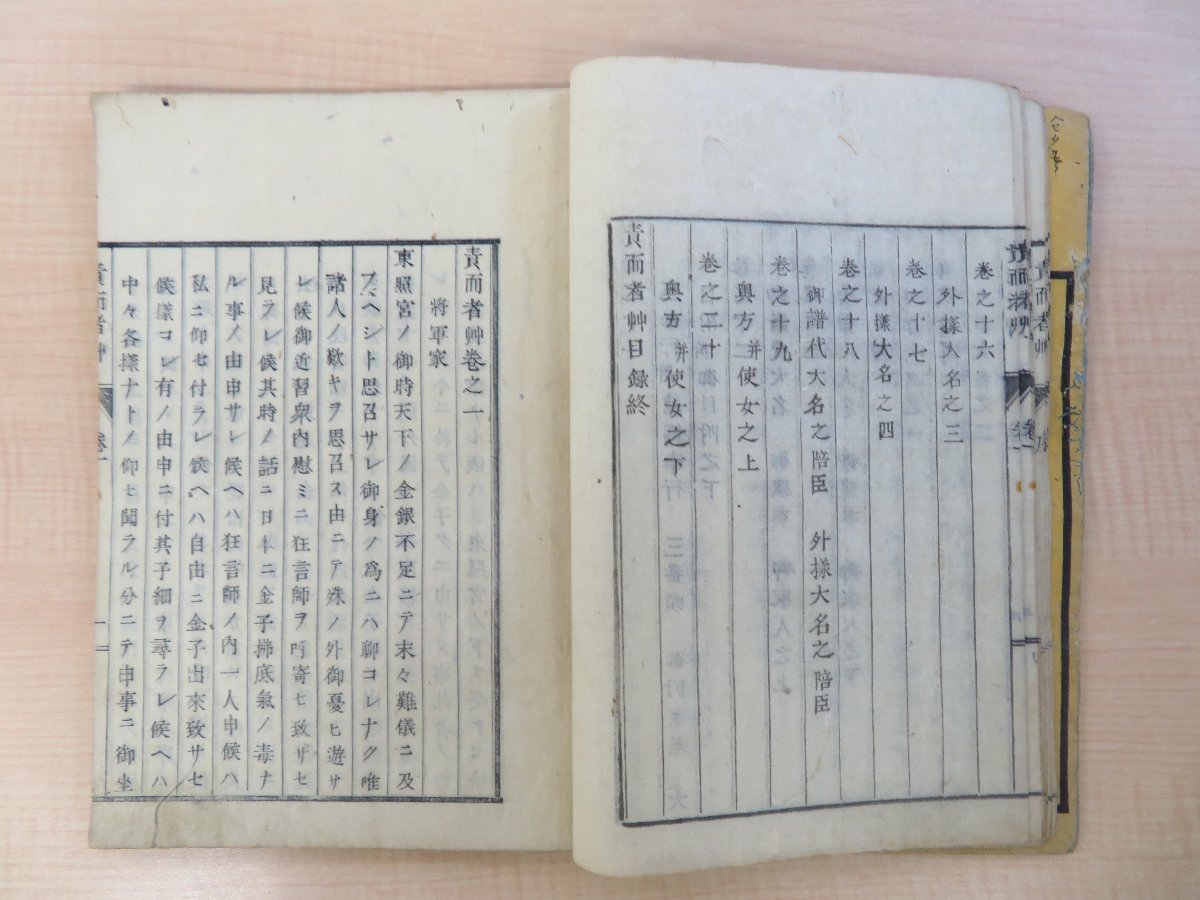 卷之十六
外樣大名之三
卷之十七
外樣大名之四
卷之十八
御譜代大名之陪臣　外樣大名之陪臣
卷之十九
奥方幷使女之上
卷之二十
奥方幷使女之下
責而者艸目録終
責而者艸卷之一
將軍家
東照宮ノ御時天下ノ金銀不足ニテ末々難儀ニ及
フヘシト思召サレ御身ノ爲ニハ聊コレナク唯
諸人ノ歎キヲ思召ス由ニテ殊ノ外御憂ヒ遊サ
レ候御近習衆内慰ミニ狂言師ヲ呼寄セ致サセ
見ラレ候其時ノ話ニ日本ニ金子拂底氣ノ毒ナ
ル事ノ由申サレ候ヘハ狂言師ノ内一人申候ハ
私ニ仰セ付ラレ候ヘハ自由ニ金子出來致サセ
候樣コレ有ノ由申ニ付其子細ヲ尋ラレ候ヘハ
中々各樣ナトノ仰セ聞ラル分ニテ申事ニ御坐
責而者艸
卷一
一